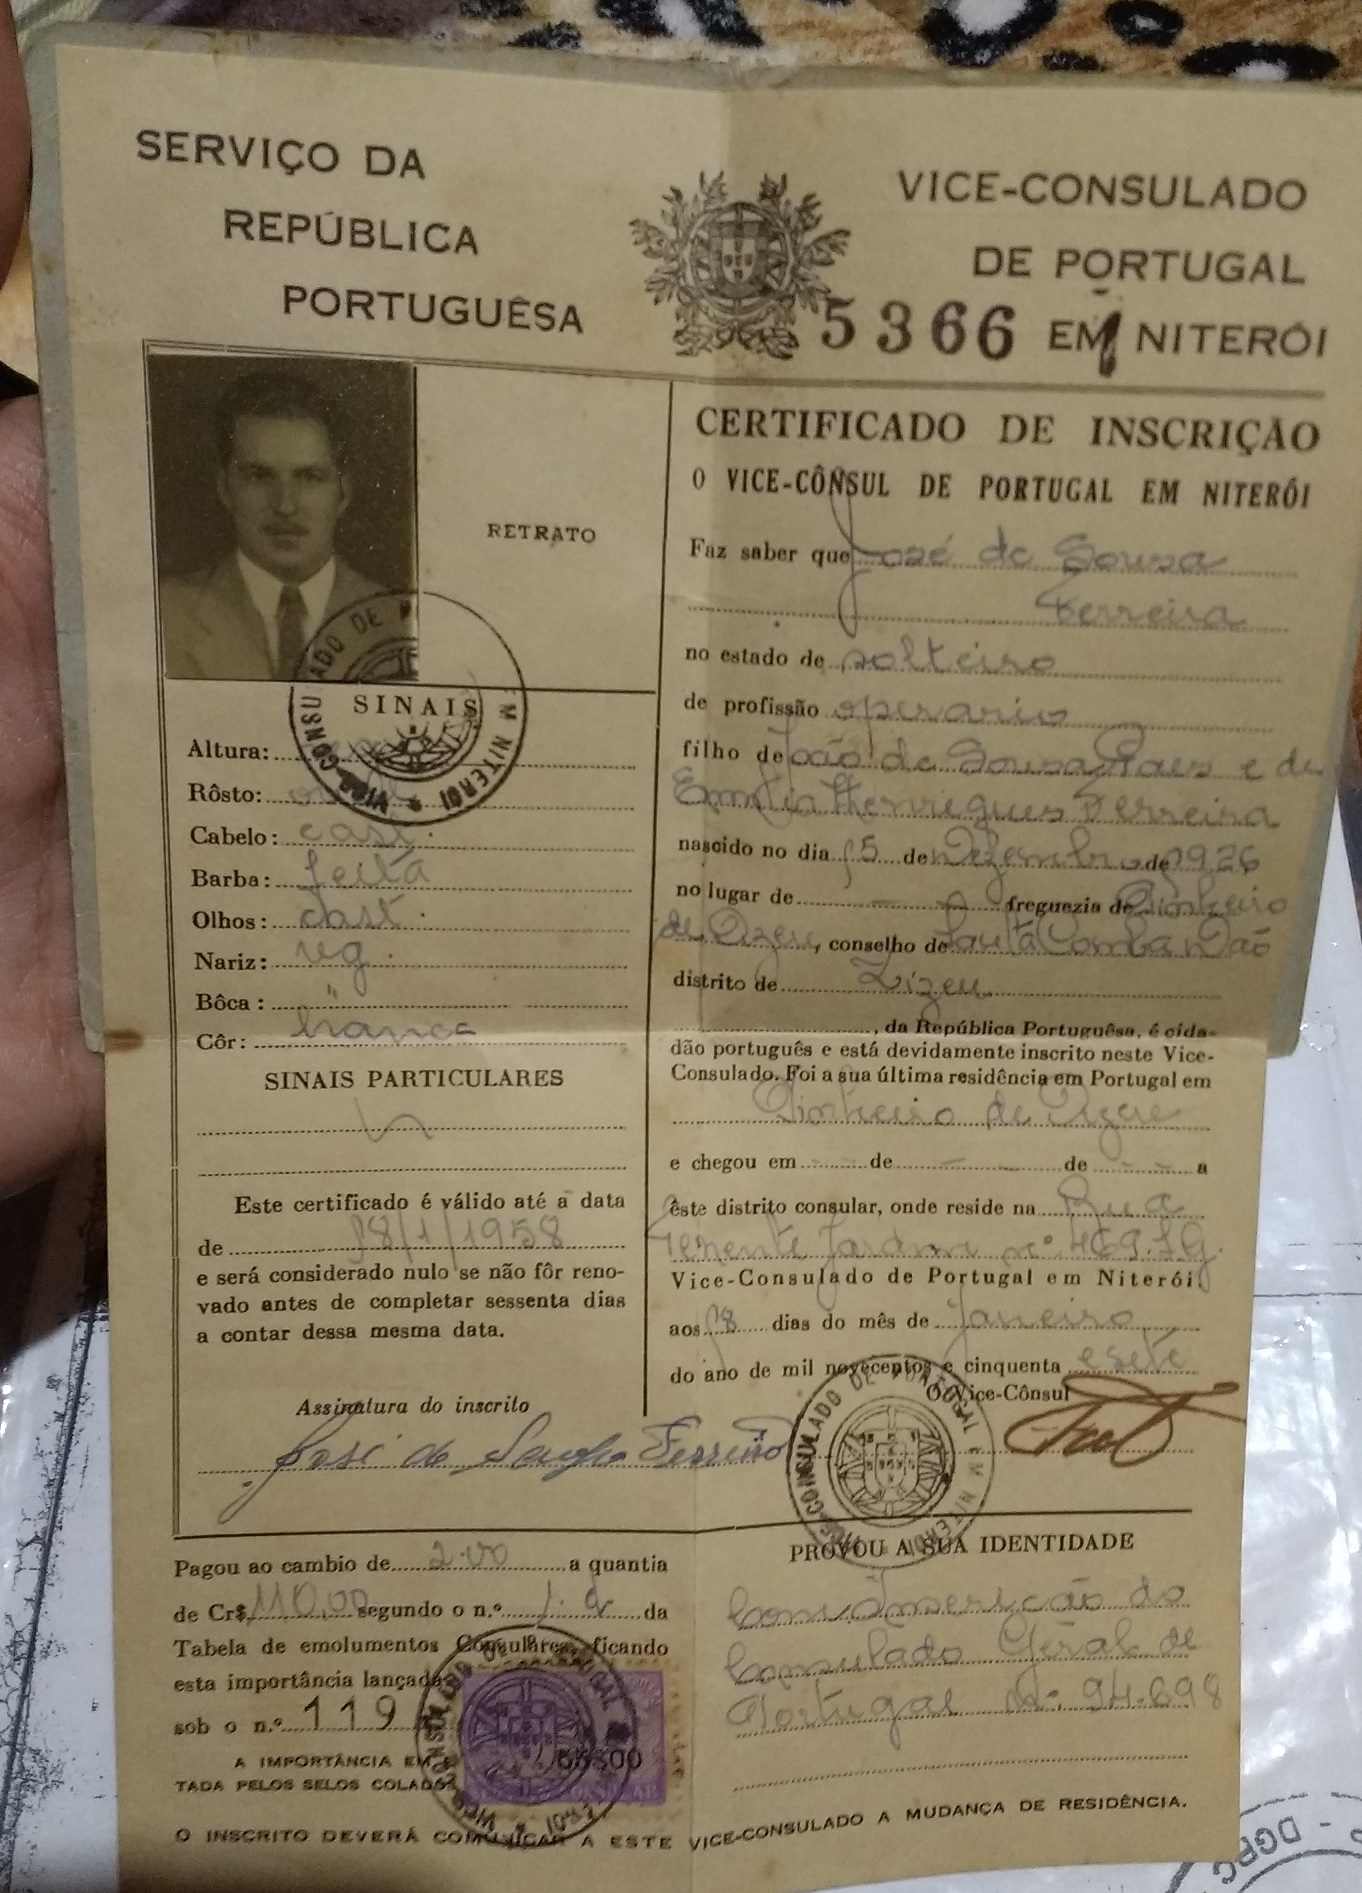 SERVIÇO DA
REPÚBLICA
PORTUGUÊSA
VICE-CONSULADO
DE PORTUGAL
5366 EM NITERÓI
RETRATO
SINAIS
Altura:
Rôsto:
Cabelo: cast.
Barba: feita
Olhos: cast.
Nariz: vg.
Bôca: "
Côr: branca
SINAIS PARTICULARES
Este certificado é válido até a data
de 18/1/1958
e será considerado nulo se não fôr reno-
vado antes de completar sessenta dias
a contar dessa mesma data.
Assinatura do inscrito
José de Ferreira
CERTIFICADO DE INSCRIÇÃO
O VICE-CÔNSUL DE PORTUGAL EM NITERÓI
Faz saber que José de Sousa
Ferreira
no estado de solteiro
de profissão operario
filho de João de Sousa Paes e de
Emilia Henriques Ferreira
nascido no dia 15 de Dezembro de 1926
no lugar de - - freguezia de Pinheiro
de Azere, conselho de Santa Comba Dão
distrito de Vizeu
, da República Portuguêsa, é cida-
dão português e está devidamente inscrito neste Vice-
Consulado. Foi a sua última residência em Portugal em
Pinheiro de Azere
e chegou em - - de - de - - a
êste distrito consular, onde reside na Rua
Tenente Jardim nº
Vice-Consulado de Portugal em Niterói,
aos 18 dias do mês de Janeiro
do ano de mil novecentos e cinquenta e sete
O Vice-Cônsul
VICE-CONSULADO DE PORTUGAL EM NITERÓI
Pagou ao cambio de 2.00 a quantia
de Cr$ 110,00 segundo o n.º da
Tabela de emolumentos Consulares, ficando
esta importância lançada
sob o n.º 119
A IMPORTÂNCIA EM
TADA PELOS SELOS COLADOS
PROVOU A SUA IDENTIDADE
com Inscrição do
Consulado Geral de
Portugal nº 94.698
O INSCRITO DEVERÁ COMUNICAR A ESTE VICE-CONSULADO A MUDANÇA DE RESIDÊNCIA.
DGPC